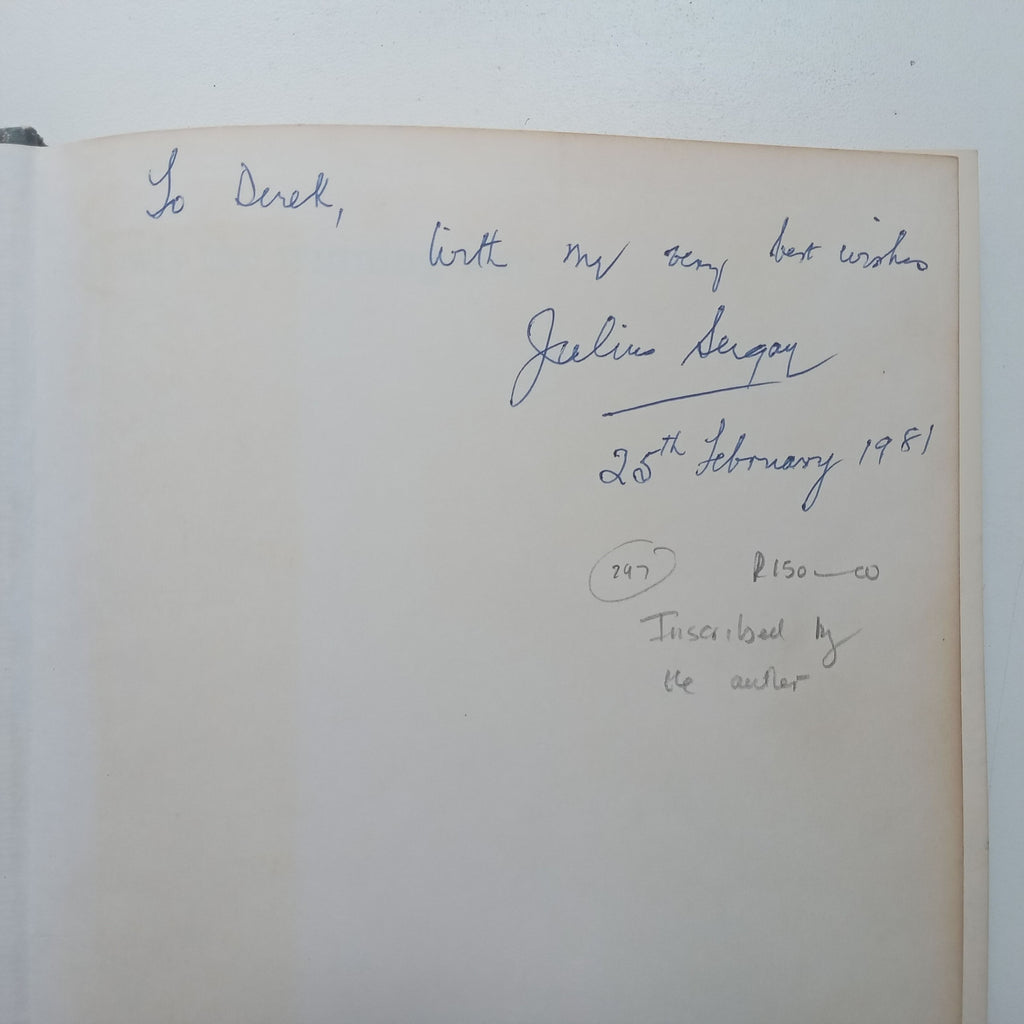 To Derek,
With my very best wishes
Julius Sergay
25th February 1981
297 R150—00
Inscribed by
the author